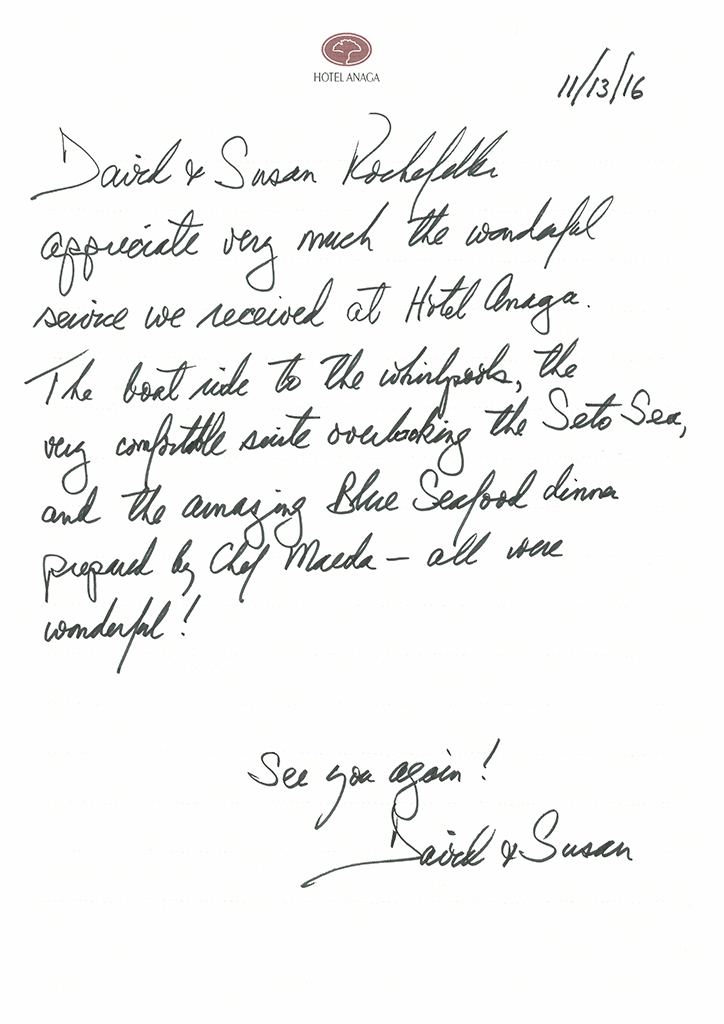 HOTEL ANAGA
11/13/16
David & Susan Rockefeller
appreciate very much the wonderful
service we received at Hotel Anaga.
The boat ride to the whirlpools, the
very comfortable suite overlooking the Seto Sea,
and the amazing Blue Seafood dinner
prepared by Chef Maeda – all were
wonderful!
See you again!
David & Susan